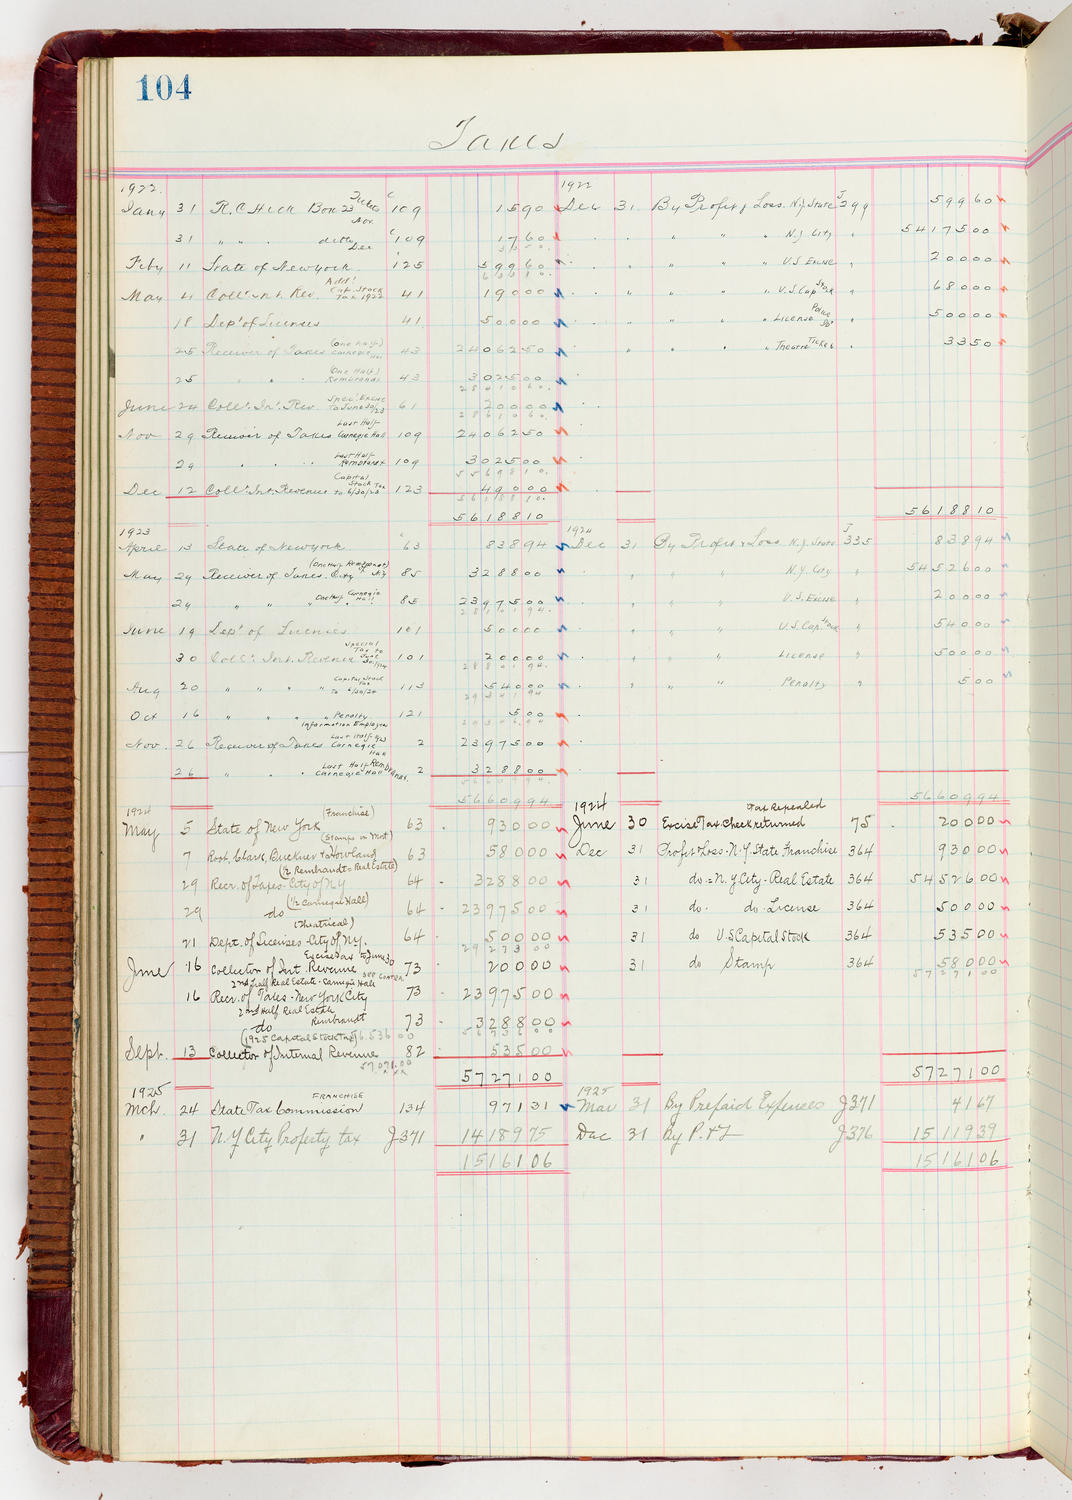 104
Taxes
1922
Jany 31 R.C. Heck Box 23 Tickets Nov. C 109 1590
31 " " . ditto Dec C 109 1760
Feby 11 State of New York C 125 59960
May 4 Coll. Int. Rev. Add'l Cap. Stock Tax 1922 41 19000
18 Dep't of Licenses 41 50000
25 Receiver of Taxes (One Half) Carnegie Hall 43 2406250
25 " " (One Half) Rembrandt 43 302500
June 24 Coll. Int. Rev. Spec. Excise To June 30/23 61 20000
Nov 29 Receiver of Taxes Last Half Carnegie Hall 109 2406250
29 " " " Last Half Rembrandt 109 302500
Dec 12 Coll. Int. Revenue Capital Stock Tax to 6/30/23 123 49000
5618810
1923
April 13 State of New York C 63 83894
May 29 Receiver of Taxes. City of NY (One Half Rembrandt) 85 328800
29 " " " One Half Carnegie Hall 85 2397500
June 19 Dep't of Licenses 101 50000
30 Coll. Int. Revenue Special Tax to June 30/24 101 20000
Aug 20 " " " " Capital Stock Tax To 6/30/24 113 54000
Oct 16 " " " Penalty Information Employees 121 500
Nov. 26 Receiver of Taxes Last Half 1923 Carnegie Hall 2 2397500
26 " " Last Half Rembrandt Carnegie Hall 2 328800
5660994
1924
May 5 State of New York (Franchise) 63 93000
7 Root, Clark, Buckner & Howland (Stamps on Mort) 63 58000
29 Recr. of Taxes - City of NY (1/2 Rembrandt = Real Estate) 64 328800
29 do (1/2 Carnegie Hall) 64 2397500
21 Dept. of Licenses - City of N.Y. (Theatrical) 64 50000
292300
June 16 Collector of Int. Revenue Excise Tax to June 30 73 20000
16 Recr. of Taxes - New York City 2nd Half Real Estate - Carnegie Hall see contra 73 2397500
do 2nd Half Real Estate Rembrandt 73 328800
Sept. 13 Collector of Internal Revenue (1925 Capital Stock Tax) 56.536 00 82 53500
57,071.00
5727100
1925
Mch. 24 State Tax Commission FRANCHISE 134 97131
" 31 N.Y City Property tax J371 1418975
1516106
1922
Dec 31 By Profit & Loss. N.Y. State J 299 59960
" " " N.Y. City " 5417500
" " " U.S Excise " 20000
" " " U.S. Cap Stock " 68000
" " " License Police Dpt " 50000
" " " Theatre Ticket " 3350
5618810
1924
Dec 31 By Profit & Loss N.Y. State J 335 83894
" " " N.Y. City " 5452600
" " " U.S. Excise " 20000
" " " U.S. Cap. Stock " 54000
" " " License " 50000
" " " Penalty " 500
5660994
1924
June 30 Excise Tax Check returned Tax repealed 75 20000
Dec 31 Profit & Loss - N.Y. State Franchise 364 93000
31 do = N.Y City - Real Estate 364 5452600
31 do. do. License 364 50000
31 do U.S Capital Stock 364 53500
31 do Stamp 364 58000
5727100
5727100
1925
Mar 31 By Prepaid Expenses J371 4167
Dec 31 By P. & L J376 1511939
1516106